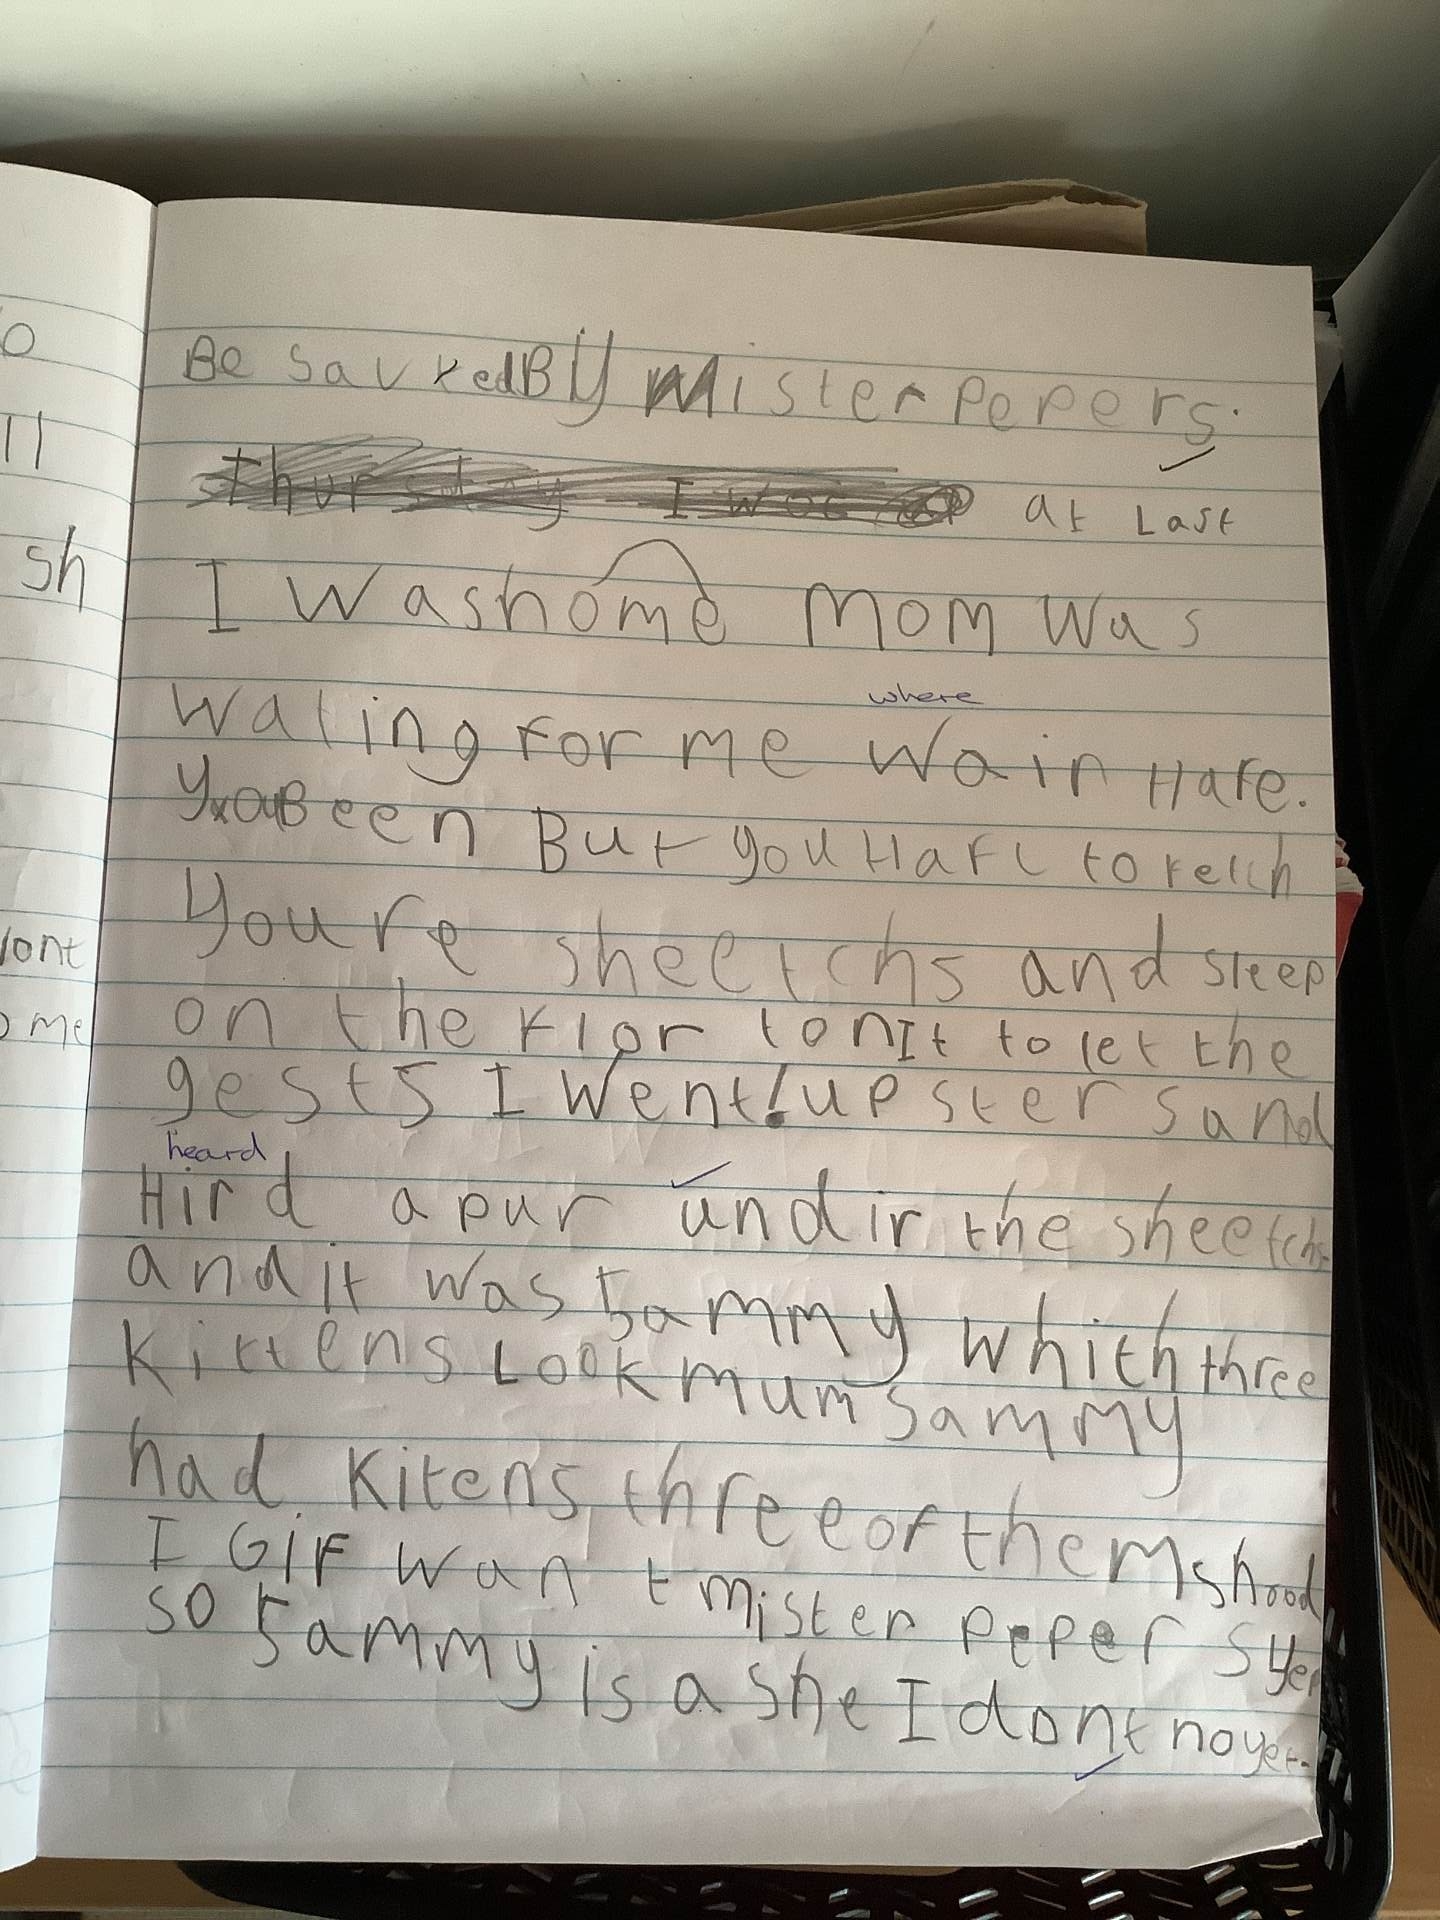 o
ll
sh
Vont
o me
Be Savred By Mister Pepers.
thursday I was at Last
I Was home Mom was
wating for me wair Hafe.
where
you Been But you Hafe to retch
youre sheetchs and sleep
on the flor tonIt to let the
gests I went! upster sand
heard
Hird a pur undir the sheetchs
and it was Sammy which three
Kittens Look mum Sammy
had Kitens three of them shood
I GiF wan t Mister peper s yep
so Sammy is a she I dont no yet.